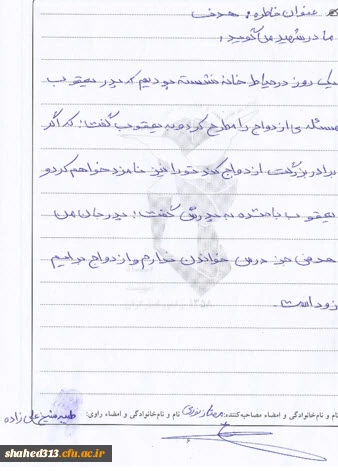 عنوان خاطره: هدف
مادر شهید می‌گوید:
یک روز در حیاط خانه نشسته بودیم که پدر یعقوب
مسئله‌ی ازدواج را مطرح کرد و به یعقوب گفت: که اگر
برادر بزرگت ازدواج کند تو را نیز نامزد خواهم کرد و
یعقوب با خنده به پدرش گفت: پدر جان من
هدفی جز درس خواندن ندارم و ازدواج برایم
زود است.
۱۳۵۸
نام و نام خانوادگی و امضاء مصاحبه کننده: نام و نام خانوادگی و امضاء راوی:
shahed313.cfu.ac.ir